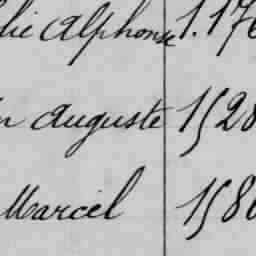 Alphonse 1.176
Auguste 1528
Marcel 1586